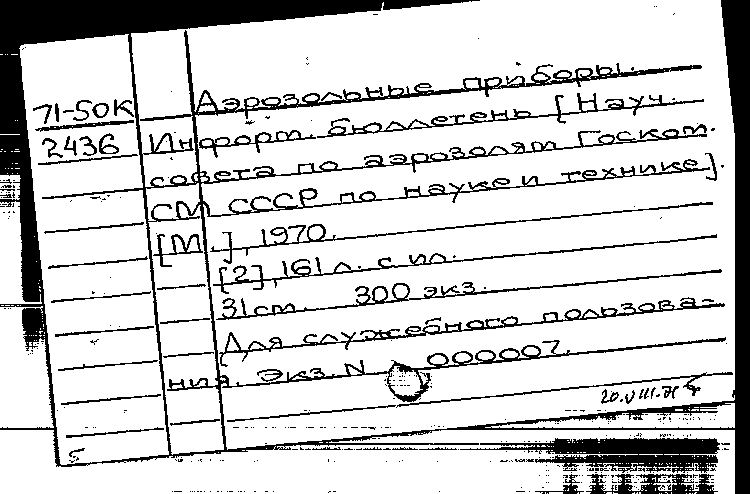 71-50К Аэрозольные приборы.
2436 Информ. бюллетень [Науч.
совета по аэрозолям Госком.
СМ СССР по науке и технике].
[М.], 1970.
[2], 161 л. с ил.
31 см. 300 экз.
Для служебного пользова-
ния. Экз. N 000007.
20.VIII.71
5